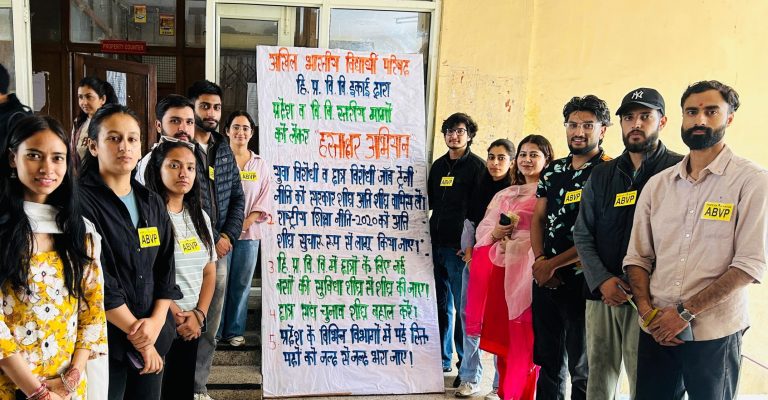 PROPERTY COUNTER
अखिल भारतीय विद्यार्थी परिषद
हि. प्र. वि. वि इकाई द्वारा
प्रदेश व वि. वि. स्तरीय मांगों
को लेकर हस्ताक्षर अभियान
युवा विरोधी व छात्र विरोधी जॉब ट्रेनी
नीति को सरकार शीघ्र अति शीघ्र वापिस लें।
2 राष्ट्रीय शिक्षा नीति-2020 को अति
शीघ्र सुचारू रूप से लागू किया जाए।
3 हि. प्र. वि. वि में छात्रों के लिए नई
बसों की सुविधा शीघ्र से शीघ्र की जाए।
4 छात्र संघ चुनाव शीघ्र बहाल करें।
5 प्रदेश के विभिन्न विभागों में पड़े रिक्त
पदों को जल्द से जल्द भरा जाए।
ABVP
ABVP
ABVP
ABVP
ABVP
ABVP
ABVP